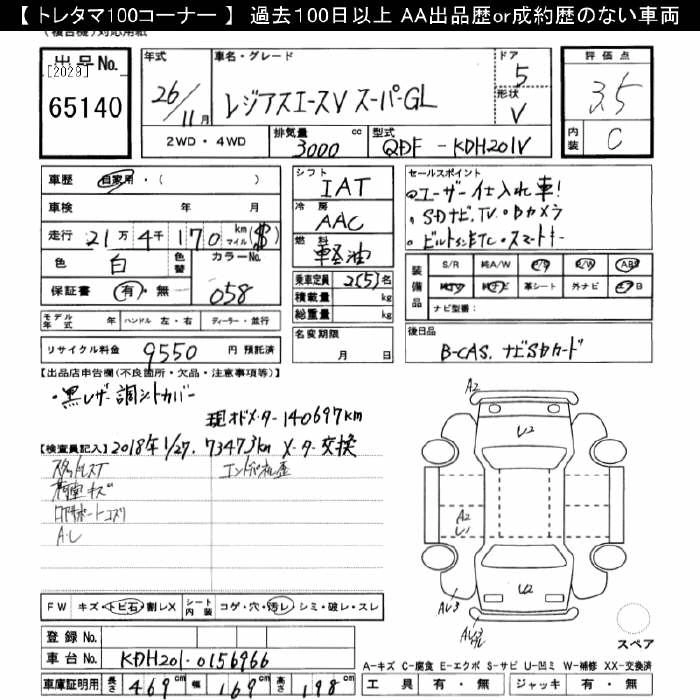 【 トレタマ100コーナー 】 過去100日以上 AA出品歴or成約歴のない車両
出品No.
[2029]
65140
年式
26/11月
車名・グレード
レジアスエースV スーパーGL
ドア
5
形状
V
評価点
3.5
内装
C
2WD・4WD
排気量
3000 cc
型式
QDF-KDH201V
車歴 自家用・( )
車検 年 月
走行 21万4千170 km マイル ($)
色 白 色替 カラーNo.
保証書 有・無 058
モデル年式 年 ハンドル 左・右 ディーラー・並行
リサイクル料金 9550 円 預託済
シフト
IAT
冷房
AAC
燃料
軽油
乗車定員 2(5)名
積載量 kg
総重量 kg
名変期限
月 日
セールスポイント
・ユーザー仕入れ車!
・SDナビ.TV.Bカメラ
・ビルトインETC・スマートキー
装備品
S/R 純A/W P/S P/W ABS
純TV 純ナビ 革シート 外ナビ エアB
ナビ型番:
後日品
B-CAS. ナビSDカード
【出品店申告欄(不良箇所・欠品・注意事項等)】
・黒レザー調シートカバー
現オドメーター140697km
【検査員記入】 2018年1/27. 73473km メーター交換
スタッドレスT
エンドパネル歪
荷室キズ
ロアサポートコスリ
A・L
A2
U2
A2
U1
U2
AU3
AU3
スペア
FW キズ・トビ石・割レX シート内装 コゲ・穴・汚レ・シミ・破レ・スレ
登録 No.
車台 No. KDH201-0156966
車庫証明用 長さ 469cm 幅 169cm 高さ 198cm
A-キズ C-腐食 E-エクボ S-サビ U-凹ミ W-補修 XX-交換済
工具 有・無 ジャッキ 有・無